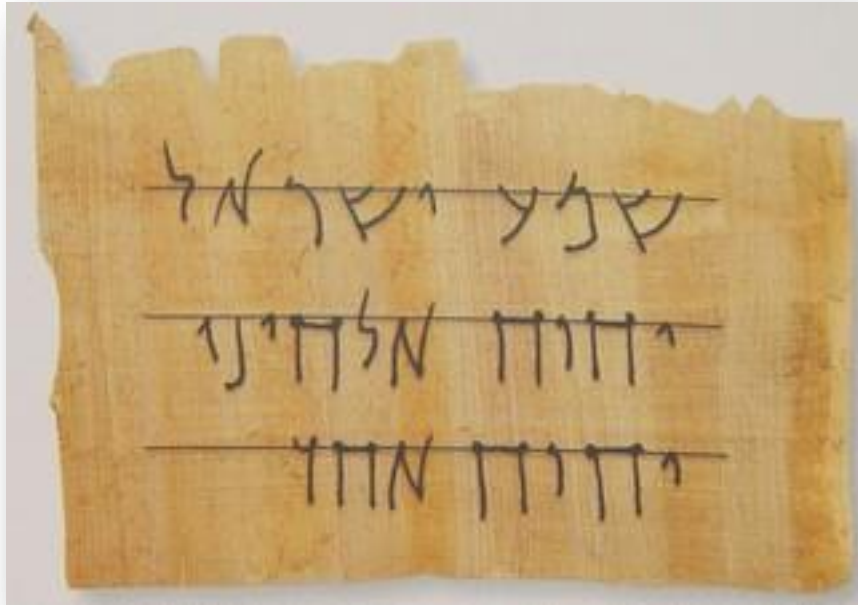 שמע ישראל
יהוה אלהינו
יהוה אחד